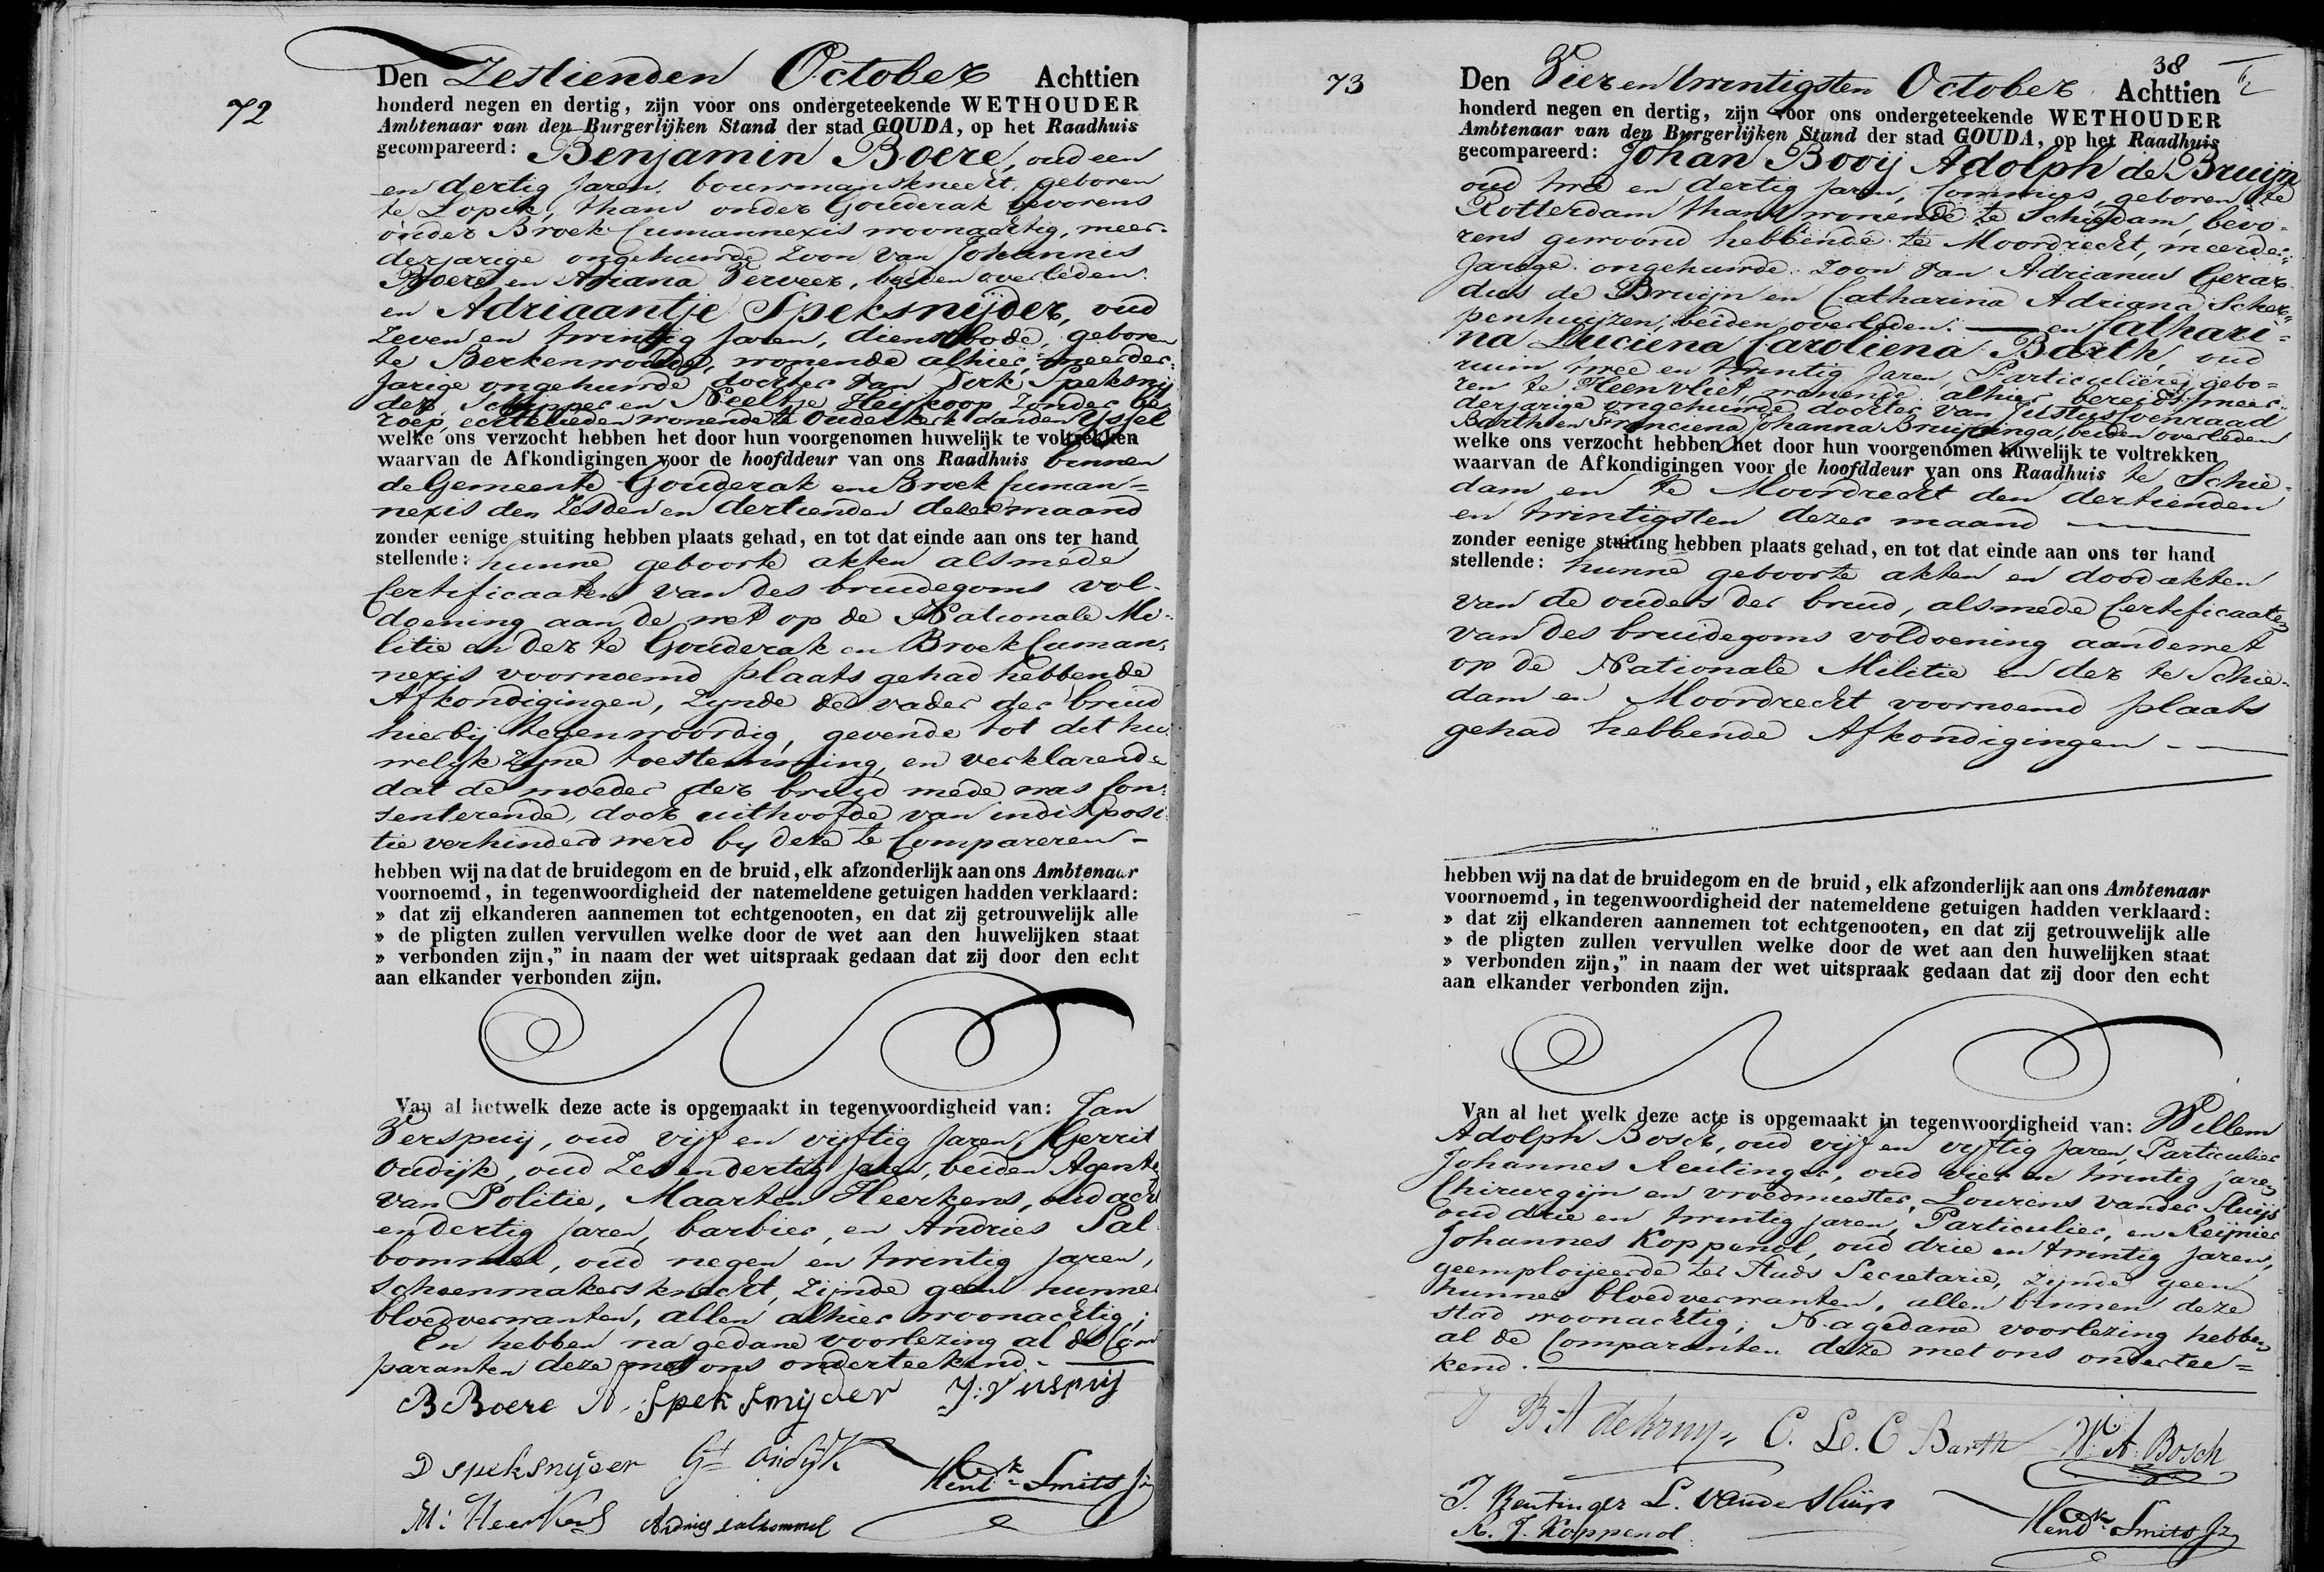 72
Den Zestienden October Achttien
honderd negen en dertig, zijn voor ons ondergeteekende WETHOUDER
Ambtenaar van den Burgerlijken Stand der stad GOUDA, op het Raadhuis
gecompareerd: Benjamin Boere, oud een
en dertig Jaren, bouwmansknecht, geboren
te Lopik, thans onder Gouderak bevorens
onder Broek Cumannexis woonachtig, meer-
derjarige ongehuwde Zoon van Johannis
Boere en Ariana Verveer, beiden overleden.
en Adriaantje Speksnijder, oud
Zeven en twintig Jaren, dienstbode, geboren
te Berkenwoude, wonende alhier, meerder-
Jarige ongehuwde dochter van Dirk Speksnij
der, Schipper en Neeltje Heijkoop Zonder be
roep, echtelieden wonende te Ouderkerk aanden Yssel
welke ons verzocht hebben het door hun voorgenomen huwelijk te voltrekken
waarvan de Afkondigingen voor de hoofddeur van ons Raadhuis binnen
de Gemeente Gouderak en Broek Cuman=
nexis den Zesden en dertienden dezer maand
zonder eenige stuiting hebben plaats gehad, en tot dat einde aan ons ter hand
stellende: hunne geboorte akten alsmede
Certificaaten van des bruidegoms vol-
doening aan de wet op de Nationale Mi-
litie en der te Gouderak en Broek Cuman-
nexis voornoemd plaats gehad hebbende
Afkondigingen, Zynde de vader der bruid
hierbij tegenwoordig, gevende tot dit hu
welyk zyne toestemming, en verklarende
dat de moeder der bruid mede was Con-
senterende, doch uithoofde van indisposi
tie verhinderd werd by deze te Compareren -
hebben wij na dat de bruidegom en de bruid, elk afzonderlijk aan ons Ambtenaar
voornoemd, in tegenwoordigheid der natemeldene getuigen hadden verklaard:
» dat zij elkanderen aannemen tot echtgenooten, en dat zij getrouwelijk alle
» de pligten zullen vervullen welke door de wet aan den huwelijken staat
» verbonden zijn,” in naam der wet uitspraak gedaan dat zij door den echt
aan elkander verbonden zijn.
Van al hetwelk deze acte is opgemaakt in tegenwoordigheid van: Jan
Verspuij, oud vijf en vyftig Jaren, Gerrit
Oudijk, oud Zes en dertig Jaren, beiden Agenten
van Politie, Maarten Heerkens, oud acht
en dertig Jaren, barbier, en Andries Sal
bommel, oud negen en twintig Jaren,
schoenmakersknecht, Zijnde geen hunner
bloedverwanten, allen alhier woonachtig;
En hebben na gedane voorlezing al de Com
paranten deze met ons onderteekend.
B Boere A. Speksnyder J: Verspuij
D speksnyder Gt Oudijk Hendk Smits Jz
M: Heerkens Andries salbommel
38
73
Den Vier en twintigsten October Achttien
honderd negen en dertig, zijn voor ons ondergeteekende WETHOUDER
Ambtenaar van den Burgerlijken Stand der stad GOUDA, op het Raadhuis
gecompareerd: Johan Booij Adolph de Bruijn
oud twee en dertig Jaren, Commies, geboren te
Rotterdam thans wonende te Schiedam, bevo-
rens gewoond hebbende te Moordrecht, meerder-
Jarige ongehuwde Zoon van Adrianus Gerar
dus de Bruijn en Catharina Adriana Scher-
penhuijzen, beiden overleden. en Cathari=
na Luciena Caroliena Barth, oud
ruim twee en twintig Jaren, Particuliere, gebo=
ren te Heenvliet, wonende alhier, bereids meer-
derjarige ongehuwde dochter van Justus Coenraad
Barth en Franciena Johanna Bruijninga, beiden overleden
welke ons verzocht hebben het door hun voorgenomen huwelijk te voltrekken
waarvan de Afkondigingen voor de hoofddeur van ons Raadhuis te Schie-
dam en te Moordrecht den dertienden
en twintigsten dezer maand
zonder eenige stuiting hebben plaats gehad, en tot dat einde aan ons ter hand
stellende: hunne geboorte akten en doodakten
van de ouders der bruid, alsmede Certificaaten
van des bruidegoms voldoening aan de wet
op de Nationale Militie en der te Schie-
dam en Moordrecht voornoemd plaats
gehad hebbende Afkondigingen -
hebben wij na dat de bruidegom en de bruid, elk afzonderlijk aan ons Ambtenaar
voornoemd, in tegenwoordigheid der natemeldene getuigen hadden verklaard:
» dat zij elkanderen aannemen tot echtgenooten, en dat zij getrouwelijk alle
» de pligten zullen vervullen welke door de wet aan den huwelijken staat
» verbonden zijn,” in naam der wet uitspraak gedaan dat zij door den echt
aan elkander verbonden zijn.
Van al het welk deze acte is opgemaakt in tegenwoordigheid van: Willem
Adolph Bosch, oud vijf en vyftig Jaren, Particulier
Johannes Reutinger, oud vier en twintig jaren
Chirurgijn en vroedmeester, Lourens vander Sluijs
oud drie en twintig Jaren, Particulier, en Reijnier
Johannes Koppenol, oud drie en twintig Jaren,
geemploijeerde ter Stads Secretarie, Zijnde geen
hunner bloedverwanten, allen binnen deze
stad woonachtig; Na gedane voorlezing hebben
al de Comparanten deze met ons ondertee=
kend.
J B A de Bruyn C. L. C Barth W. A. Bosch
J. Reutinger L. vander Sluijs
R. J. Koppenol Hendk Smits Jz